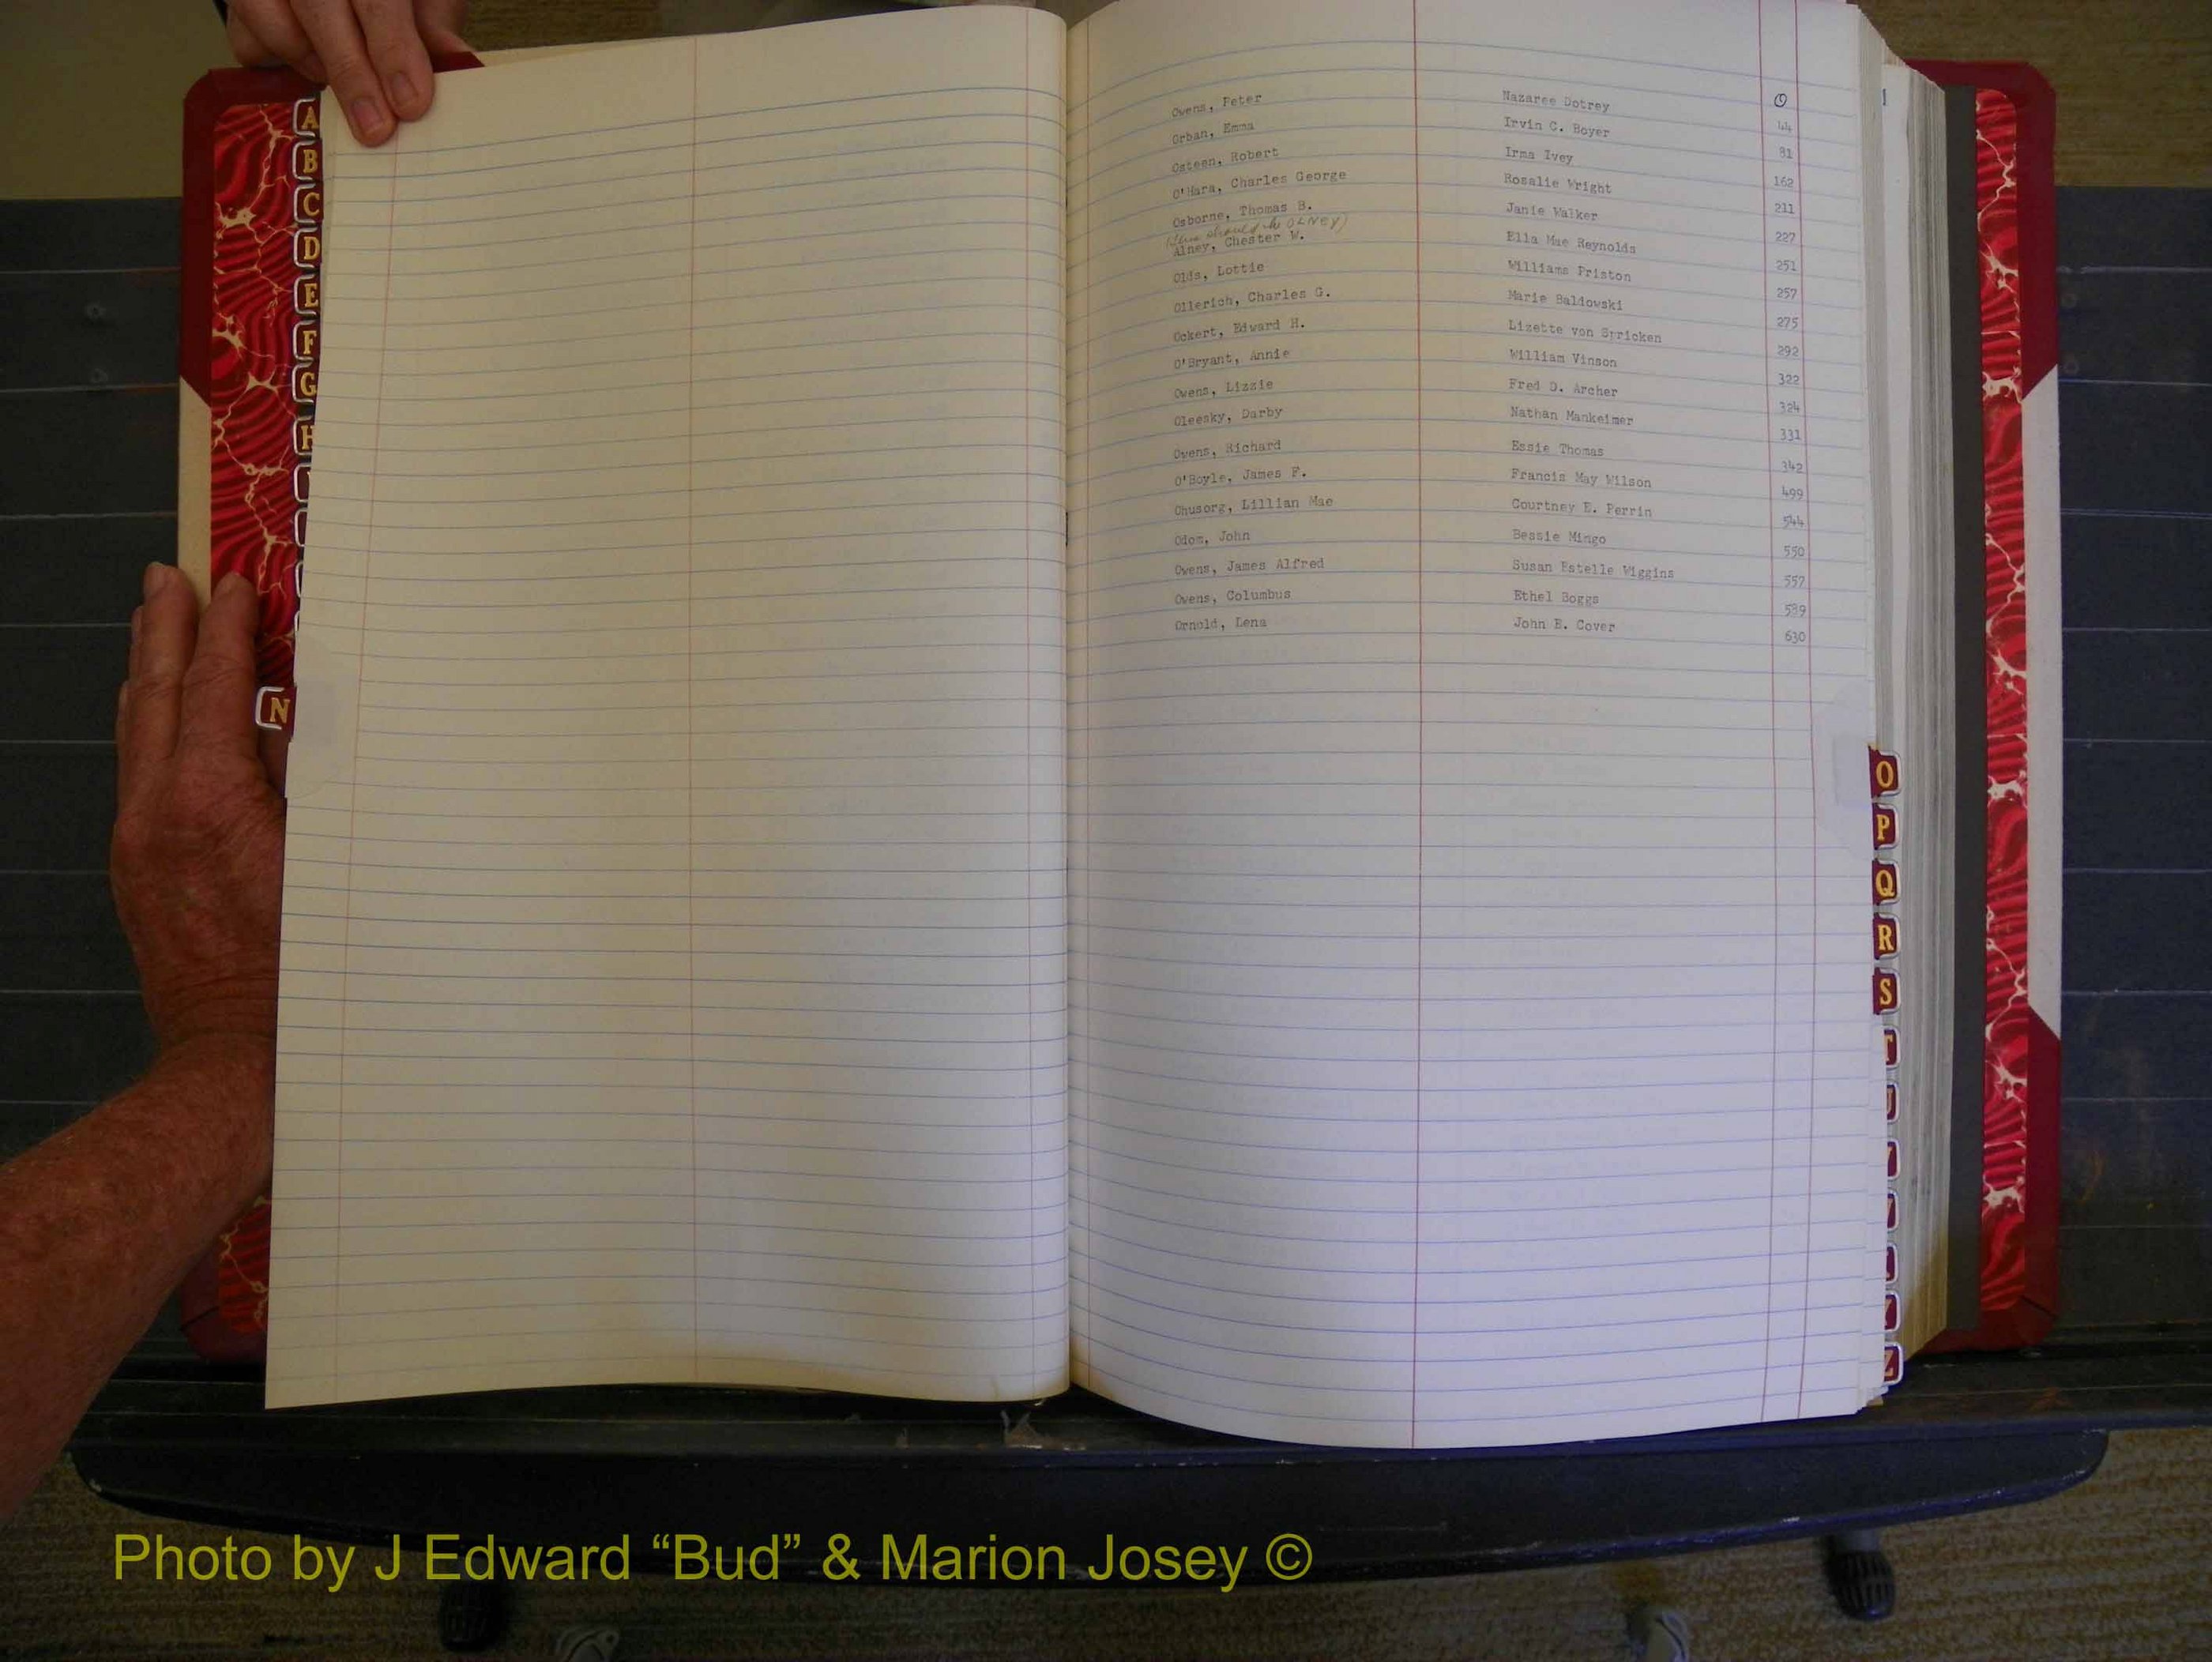 A
B
C
D
E
F
G
H
N
Owens, Peter Nazaree Dotrey O
Orban, Emma Irvin C. Boyer 44
Osteen, Robert Irma Ivey 81
O'Hara, Charles George Rosalie Wright 162
Osborne, Thomas B. Janie Walker 211
(this should be OLNEY)
Alney, Chester W. Ella Mae Reynolds 227
Olds, Lottie Williams Priston 251
Ollerich, Charles G. Marie Baldowski 257
Ockert, Edward H. Lizette von Spricken 275
O'Bryant, Annie William Vinson 292
Owens, Lizzie Fred D. Archer 322
Oleesky, Darby Nathan Mankeimer 324
Owens, Richard Essie Thomas 331
O'Boyle, James F. Francis May Wilson 342
Ohusorg, Lillian Mae Courtney E. Perrin 499
Odom, John Bessie Mingo 544
Owens, James Alfred Susan Estelle Wiggins 550
Owens, Columbus Ethel Boggs 557
Ornold, Lena John E. Cover 589
630
O
P
Q
R
S
T
U
Z
Photo by J Edward “Bud” & Marion Josey ©